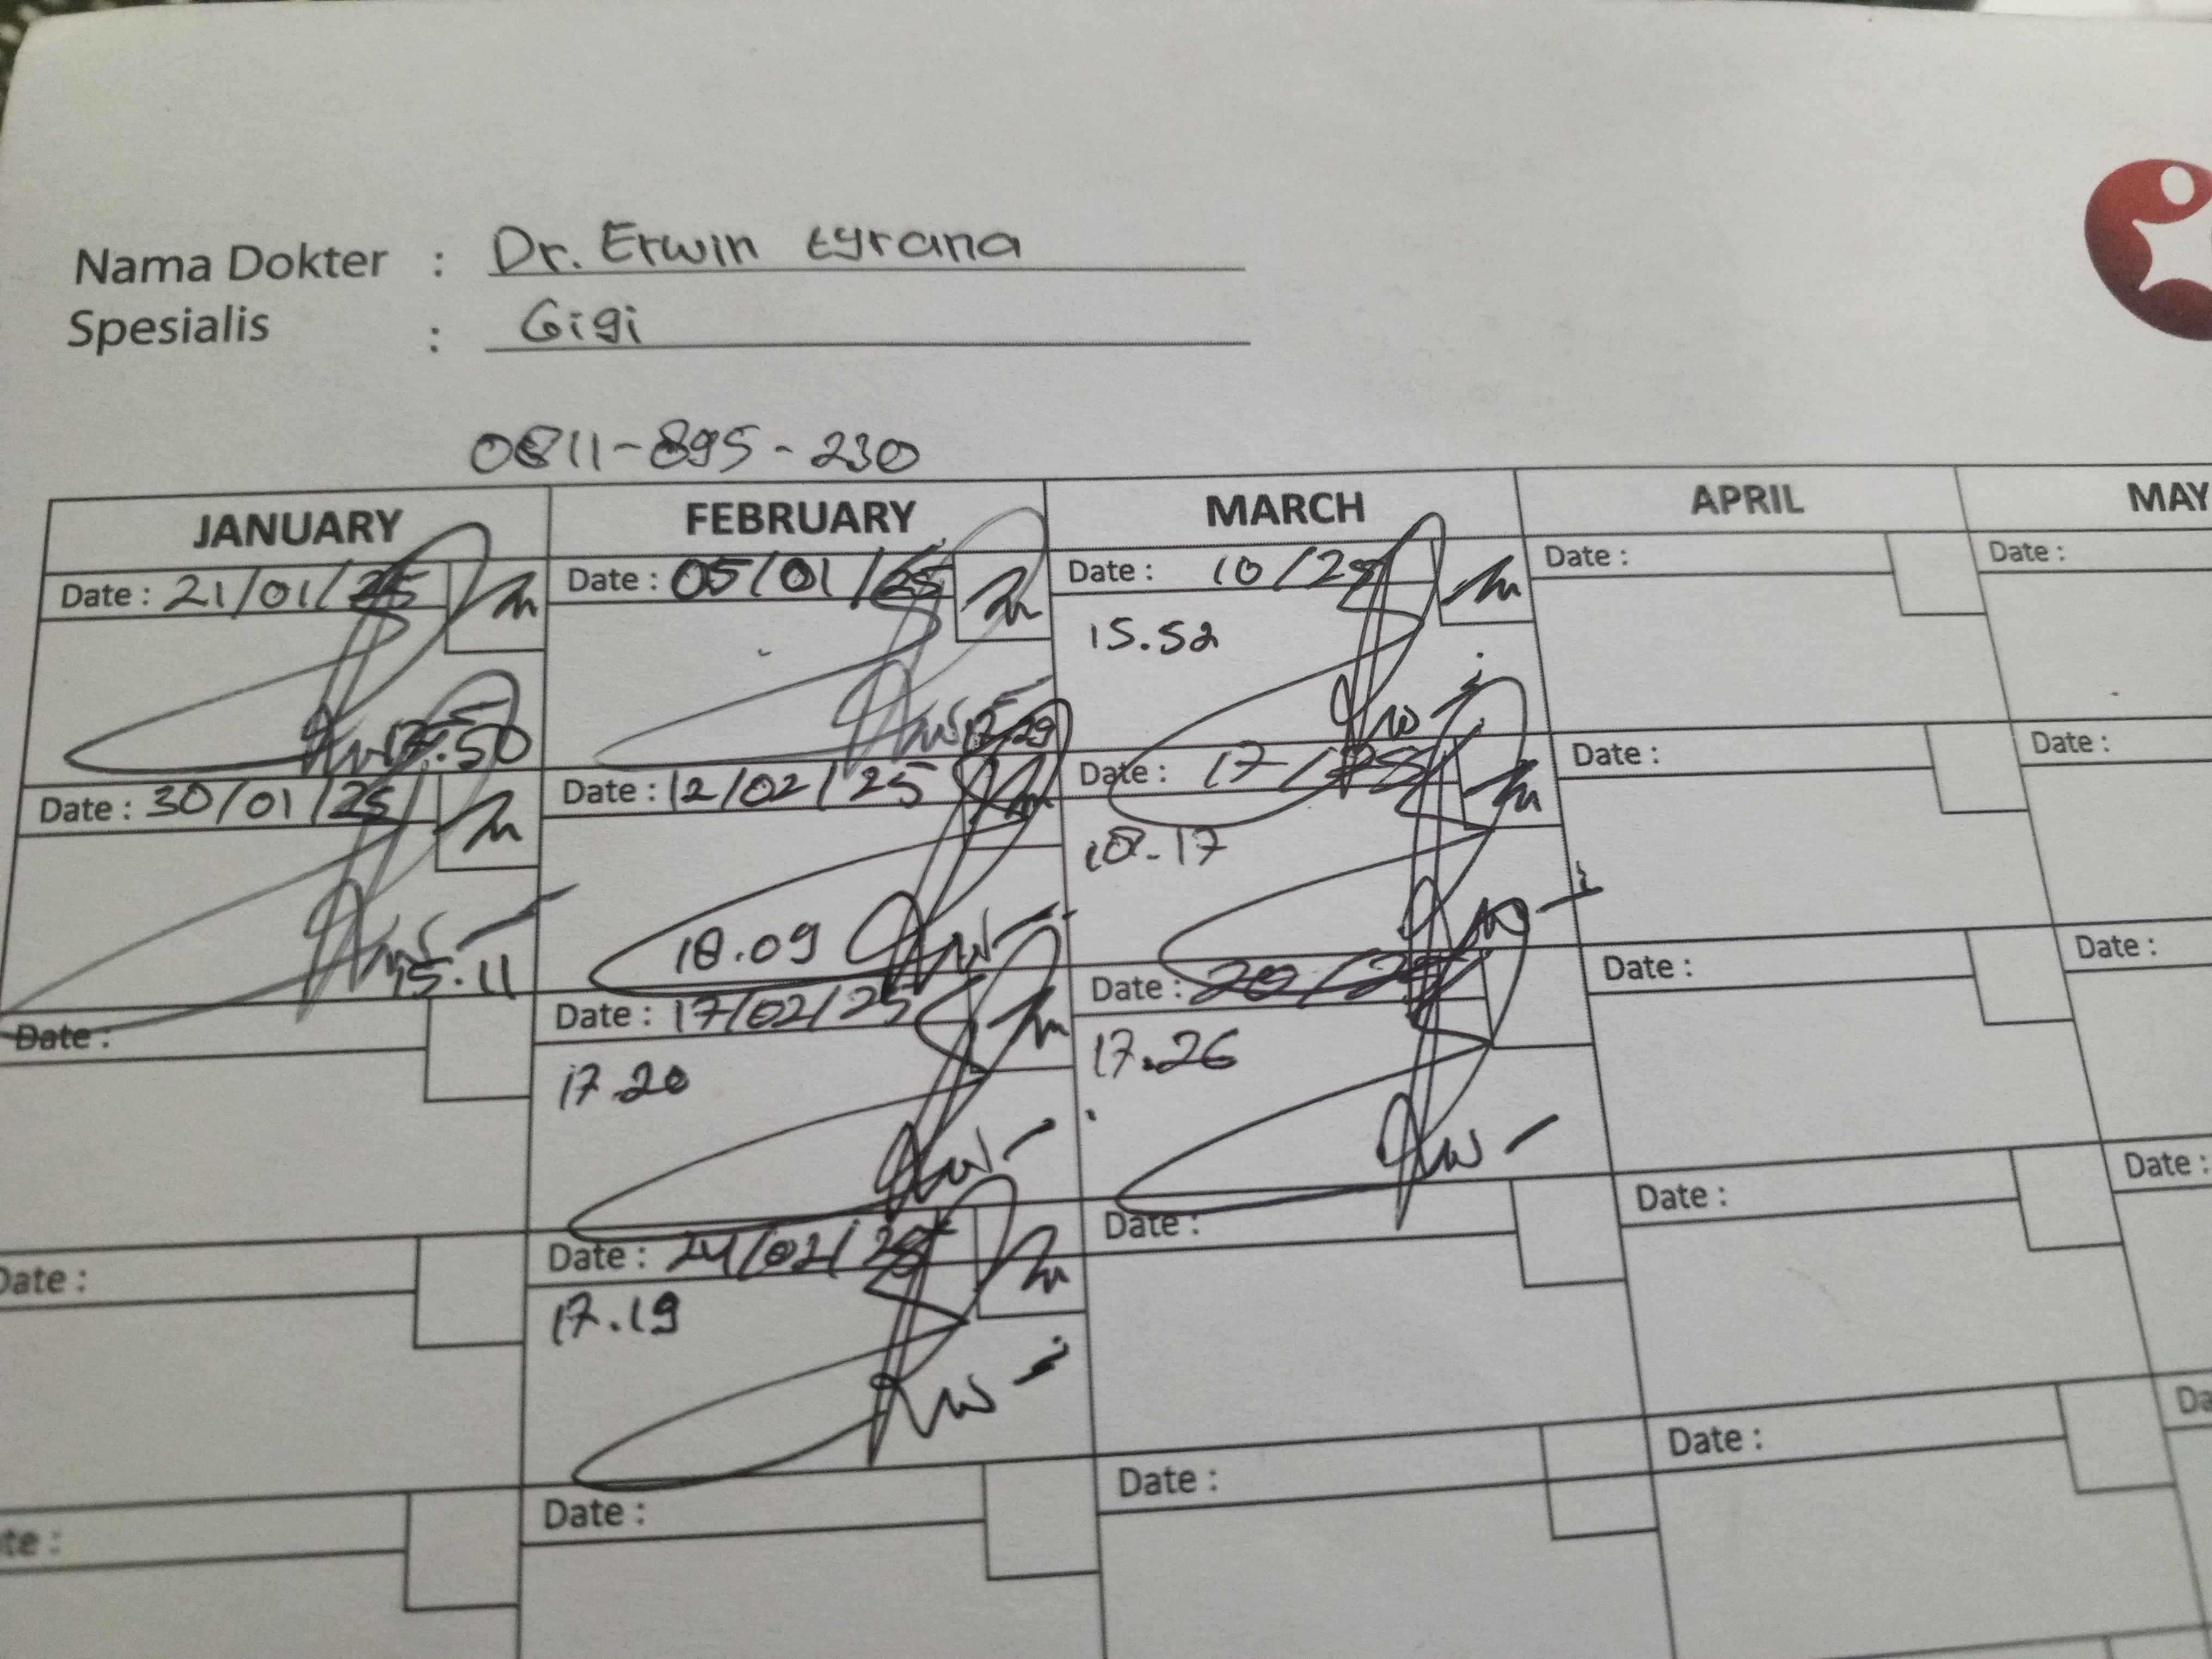 Nama Dokter : Dr. Erwin tyrana
Spesialis : Gigi
0811-895-230
JANUARY FEBRUARY MARCH APRIL MAY
Date : 21/01/25 Date : 05/01/25 Date : 10/25 Date : Date :
15.52
17.29
Date : 30/01/25 Date : 12/02/25 Date : 17/25 Date : Date :
18.17
15.11 18.09
Date : Date : 17/02/25 Date : 20/25 Date : Date :
17.20 17.26
Date : Date : 24/02/25 Date : Date : Date :
17.19
Date : Date : Date : Da